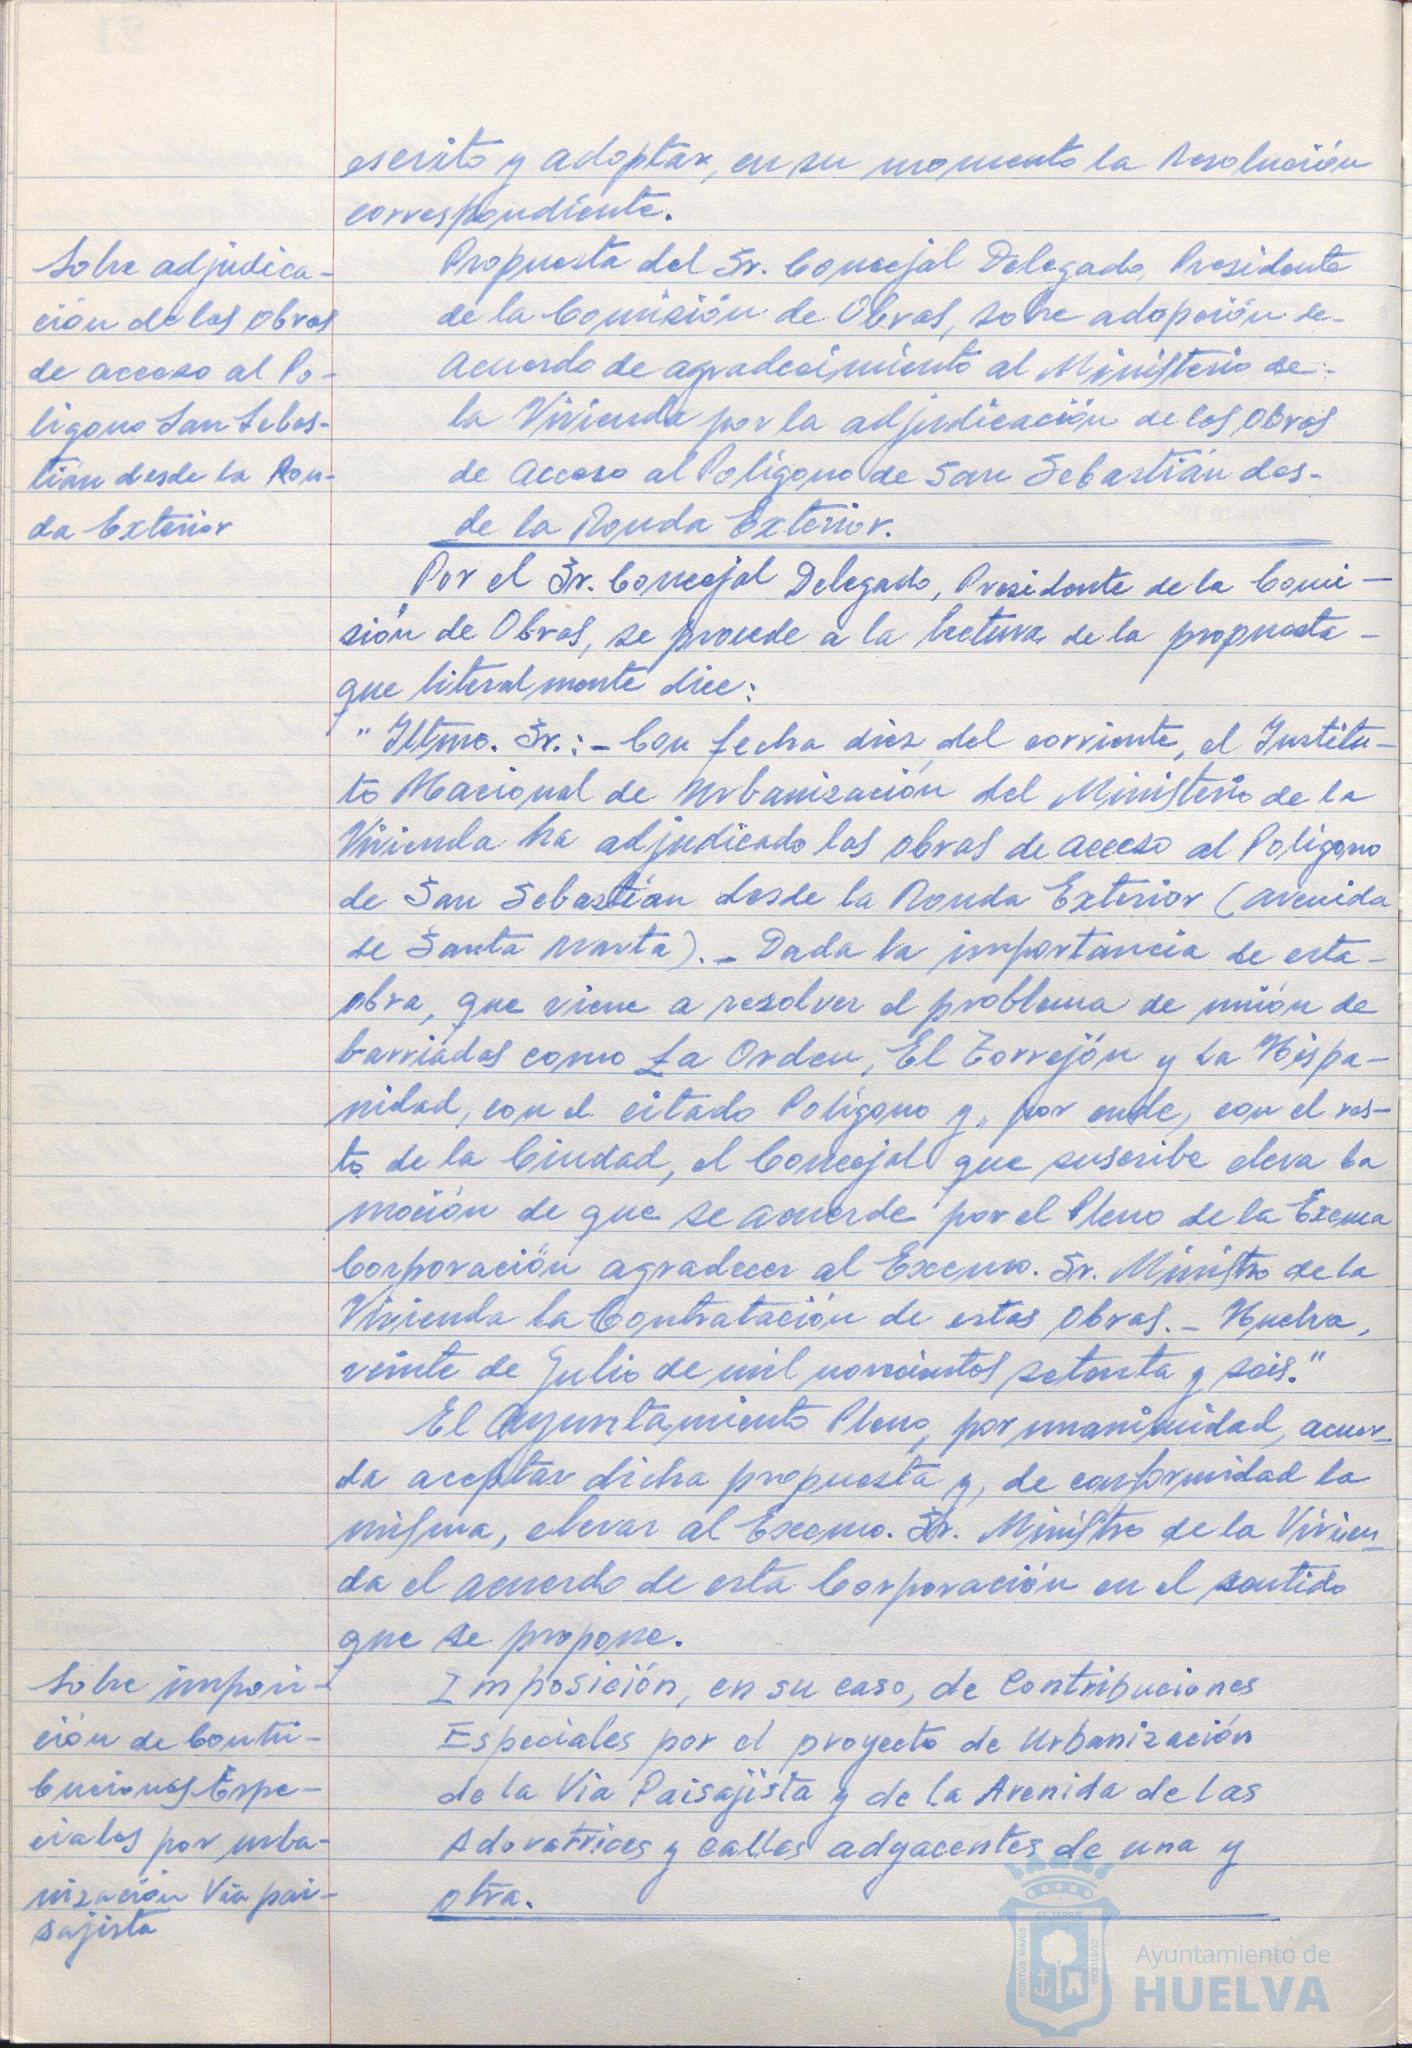 escrito y adoptar, en su momento la Resolución
correspondiente.
Sobre adjudica-
ción de las Obras
de acceso al Po-
lígono San Sebas-
tián desde la Ron-
da Exterior
Propuesta del Sr. Concejal Delegado, Presidente
de la Comisión de Obras, sobre adopción de-
acuerdo de agradecimiento al Ministerio de-
la Vivienda por la adjudicación de las Obras
de Acceso al Polígono de San Sebastián des-
de la Ronda Exterior.
Por el Sr. Concejal Delegado, Presidente de la Comi-
sión de Obras, se procede a la lectura de la propuesta-
que literalmente dice:
"Iltmo. Sr.:- Con fecha diez del corriente, el Institu-
to Nacional de Urbanización del Ministerio de la
Vivienda ha adjudicado las obras de acceso al Polígono
de San Sebastián desde la Ronda Exterior (avenida
de Santa Marta).- Dada la importancia de esta-
obra, que viene a resolver el problema de unión de
barriadas como La Orden, El Torrejón y La Hispa-
nidad, con el citado Polígono y, por ende, con el res-
to de la Ciudad, el Concejal que suscribe eleva la
moción de que se acuerde por el Pleno de la Excma
Corporación agradecer al Excmo. Sr. Ministro de la
Vivienda la Contratación de estas Obras.- Huelva,
veinte de Julio de mil novecientos setenta y seis."
El Ayuntamiento Pleno, por unanimidad, acuer-
da aceptar dicha propuesta y, de conformidad la
misma, elevar al Excmo. Sr. Ministro de la Vivien-
da el acuerdo de esta Corporación en el sentido
que se propone.
Sobre imposi-
ción de Contri-
buciones Espe-
ciales por urba-
nización Vía pai-
sajista
Imposición, en su caso, de Contribuciones
Especiales por el proyecto de Urbanización
de la Via Paisajista y de la Avenida de las
Adoratrices y calles adyacentes de una y
otra.
PORTUS MARIS
ET TERRE
CUSTODIA
Ayuntamiento de
HUELVA